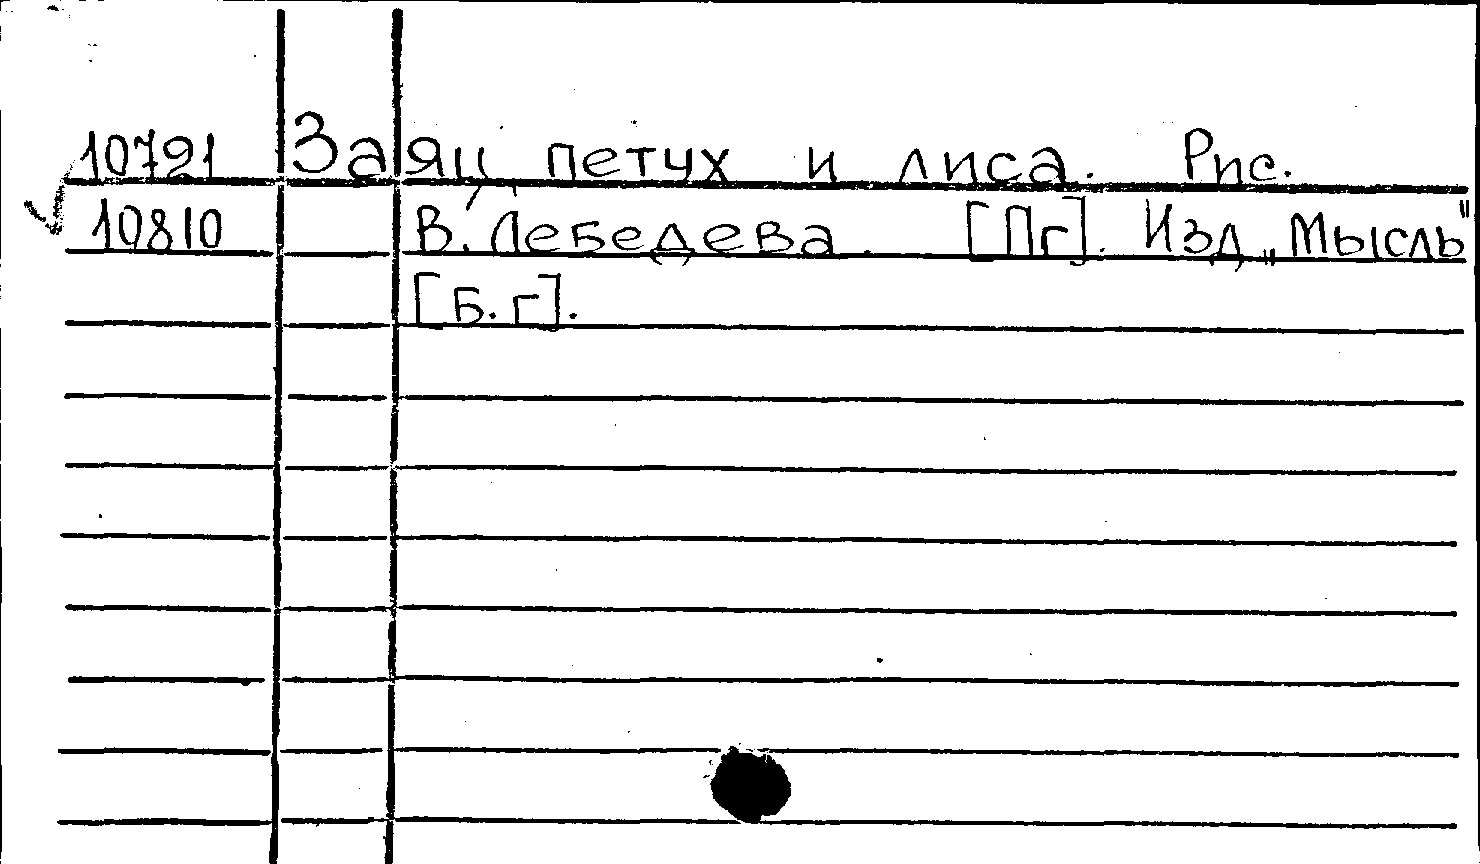 10721 Заяц, петух и лиса. Рис.
10810 В. Лебедева. [Пг]. Изд „Мысль"
[Б.г].